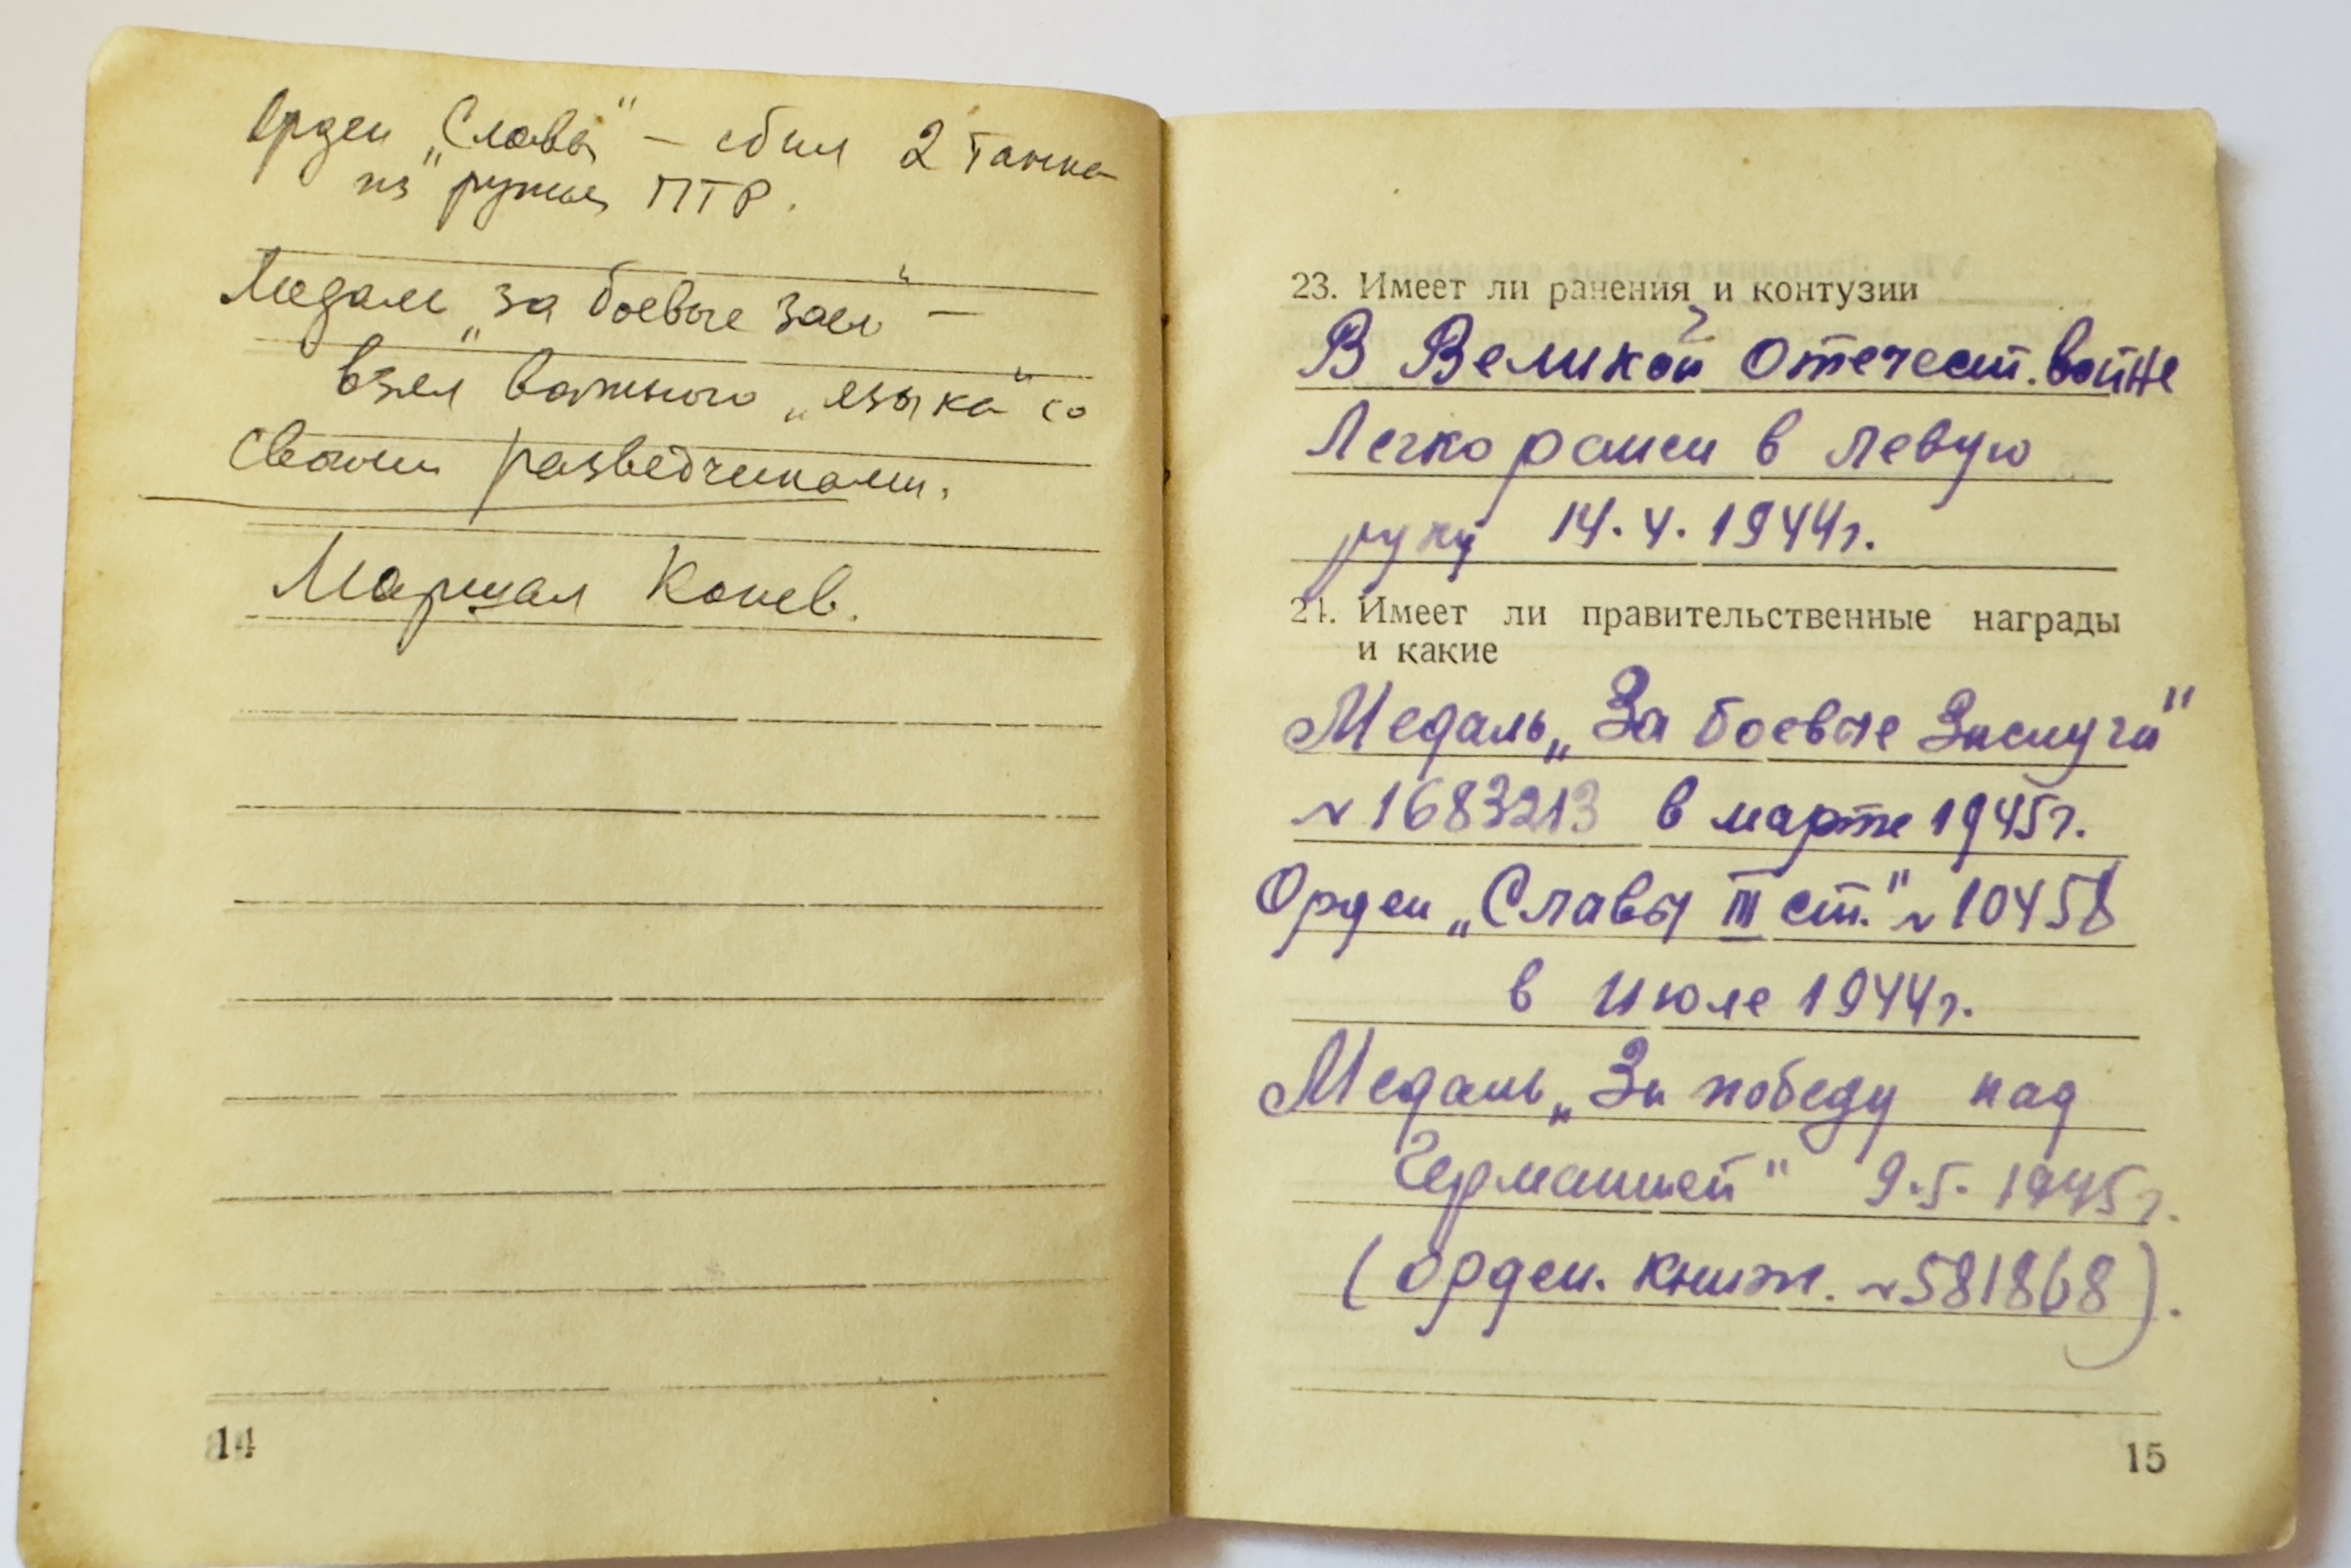 Орден „Славы" — сбил 2 танка
из ружья ПТР.
Медаль „за боевые засл" —
взял важного „языка" со
своими разведчиками.
Маршал Конев.
14
23. Имеет ли ранения и контузии
В Великой Отечест. войне
Легко ранен в левую
руку 14.4.1944г.
24. Имеет ли правительственные награды
и какие
Медаль „За боевые Заслуги"
№1683213 в марте 1945г.
Орден „Славы III ст." №10458
в июле 1944г.
Медаль „За победу над
Германией" 9.5.1945г.
(орден. книж. №581868).
15